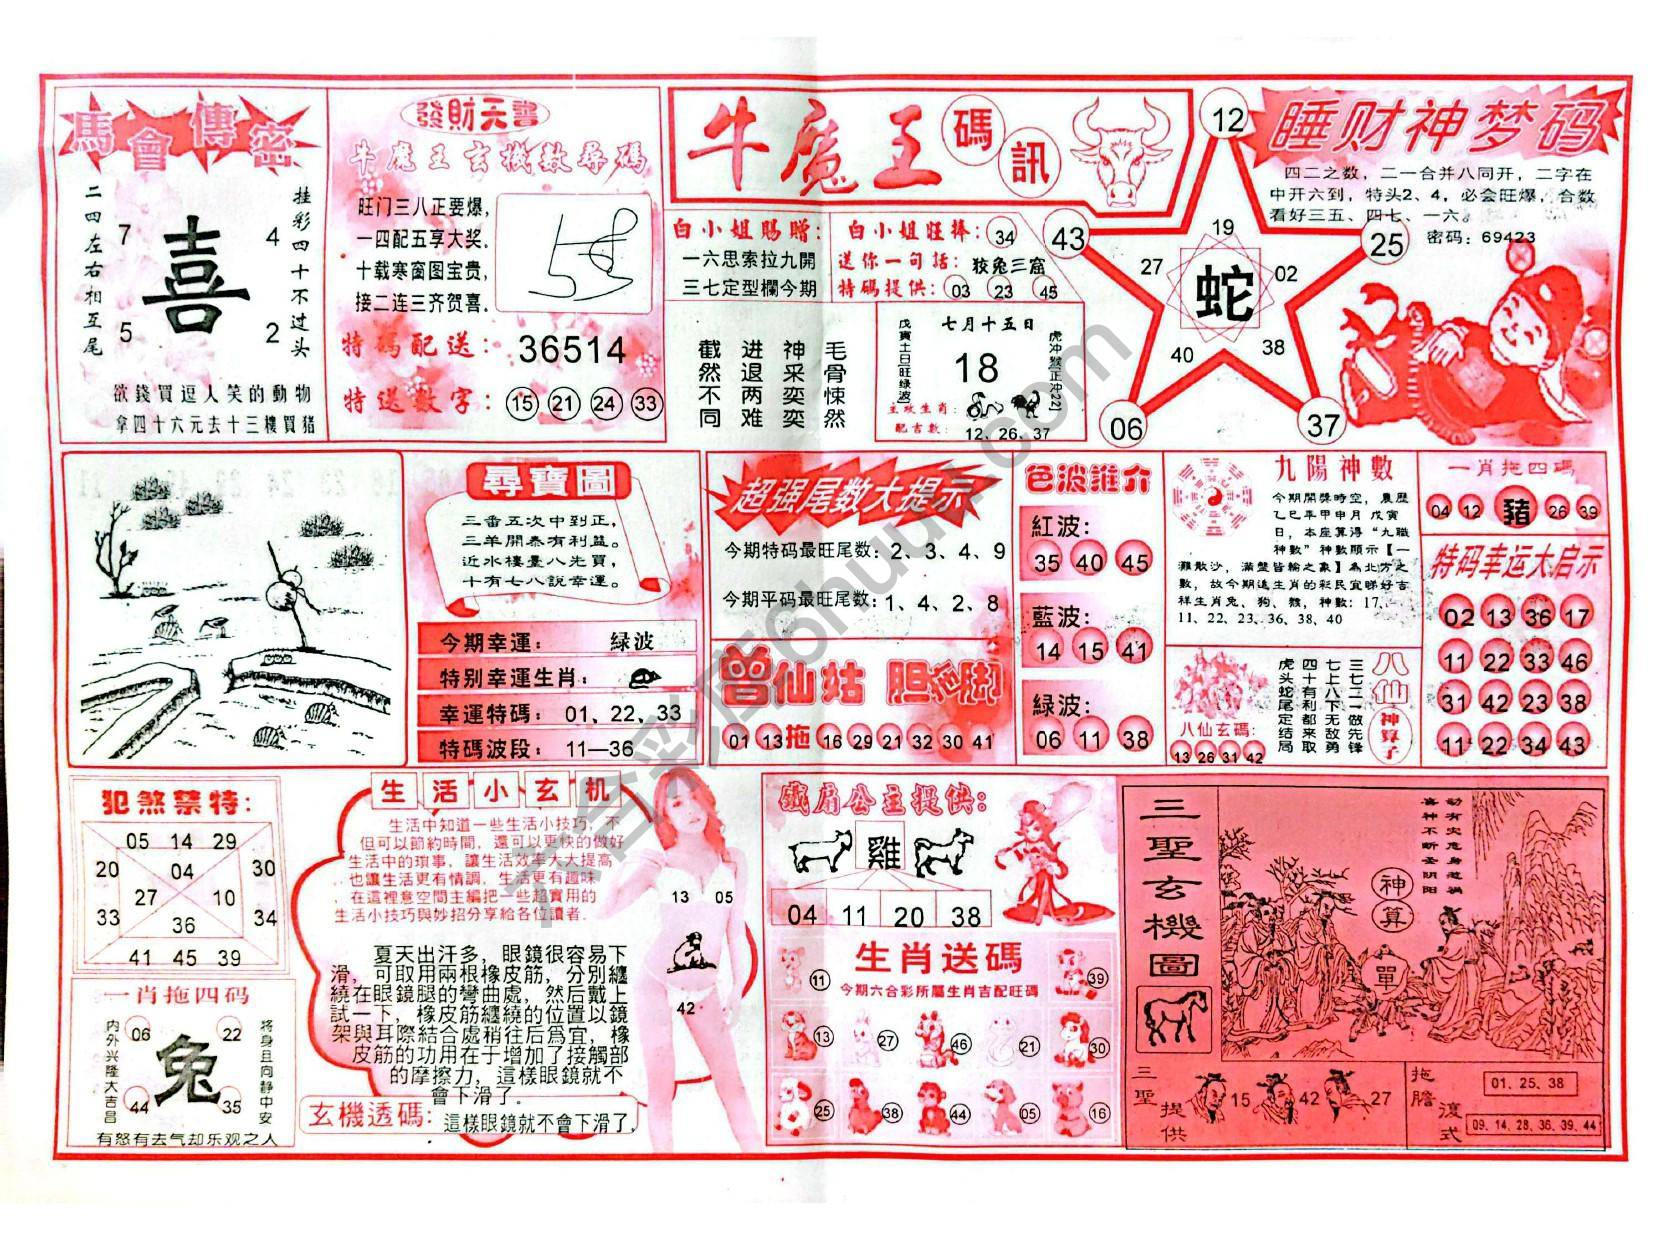 馬會傳密
二四左右相互尾
7
4
喜
5
2
挂彩四十不过头
欲錢買逗人笑的動物
拿四十六元去十三樓買豬
發财天書
牛魔王玄機數尋碼
旺门三八正要爆，
一四配五享大奖。
十载寒窗图宝贵，
接二连三齐贺喜。
特碼配送：36514
特送數字：15 21 24 33
牛魔王
碼訊
白小姐賜贈：
一六思索拉九開
三七定型欄今期
白小姐旺捧：34
送你一句話：狡兔三窟
特碼提供：03 23 45
截然不同
进退两难
神采奕奕
毛骨悚然
戊寅土日旺绿波
七月十五日
18
主攻生肖：
配吉數：12、26、37
虎冲猴(正冲22)
12
43
25
06
37
19
27
02
蛇
40
38
睡财神梦码
四二之数，二一合并八同开，二字在
中开六到，特头2、4，必会旺爆，合数
看好三五、四七、一六。
密码：69423
尋寶圖
三番五次中到正，
三羊開泰有利益。
近水樓臺八先買，
十有七八說幸運。
今期幸運：緑波
特别幸運生肖：
幸運特碼：01、22、33
特碼波段：11—36
超强尾数大提示
今期特码最旺尾数：2、3、4、9
今期平码最旺尾数：1、4、2、8
曾仙姑 胆拖脚
01 13 拖 16 29 21 32 30 41
色波推介
紅波：
35 40 45
藍波：
14 15 41
緑波：
06 11 38
九陽神數
今期開獎時空，農歷
乙巳年甲申月 戊寅
日，本座算得“九職
神數”神數顯示【一
灘散沙，滿盤皆輸之象】為北方之
數，故今期追生肖的彩民宜睇好吉
祥生肖兔、狗、雞，神數：17、
11、22、23、36、38、40
八仙玄碼：
13 26 31 42
虎头蛇尾定结局
四十有利都来取
七上八下无敌勇
三七二一做先锋
八仙
神算子
一肖拖四碼
04 12 豬 26 39
特码幸运大启示
02 13 36 17
11 22 33 46
31 42 23 38
11 22 34 43
犯煞禁特：
05 14 29
20 04 30
27 10
33 36 34
41 45 39
一肖拖四码
内外兴隆大吉昌
06
22
兔
44
35
将身且向静中安
有怒有去气却乐观之人
生活小玄机
生活中知道一些生活小技巧，不
但可以節約時間，還可以更快的做好
生活中的瑣事，讓生活效率大大提高
也讓生活更有情調，生活更有趣味，
在這裡意空間主編把一些超實用的
生活小技巧與妙招分享給各位讀者。
夏天出汗多，眼鏡很容易下
滑，可取用兩根橡皮筋，分別纏
繞在眼鏡腿的彎曲處，然后戴上
試一下，橡皮筋纏繞的位置以鏡
架與耳際結合處稍往后爲宜，橡
皮筋的功用在于增加了接觸部
的摩擦力，這樣眼鏡就不
會下滑了。
玄機透碼：這樣眼鏡就不會下滑了，
13 05
42
鐵扇公主提供：
雞
04 11 20 38
生肖送碼
今期六合彩所屬生肖吉配旺碼
11
39
13
27
46
21
30
25
38
44
05
16
三聖玄機圖
喜神不断圣阴阳
幼有灾危身惹祸
神算
單
三聖提供
15
42
27
拖膽
01、25、38
複式
09、14、28、36、39、44
六合彩库6huuu.com